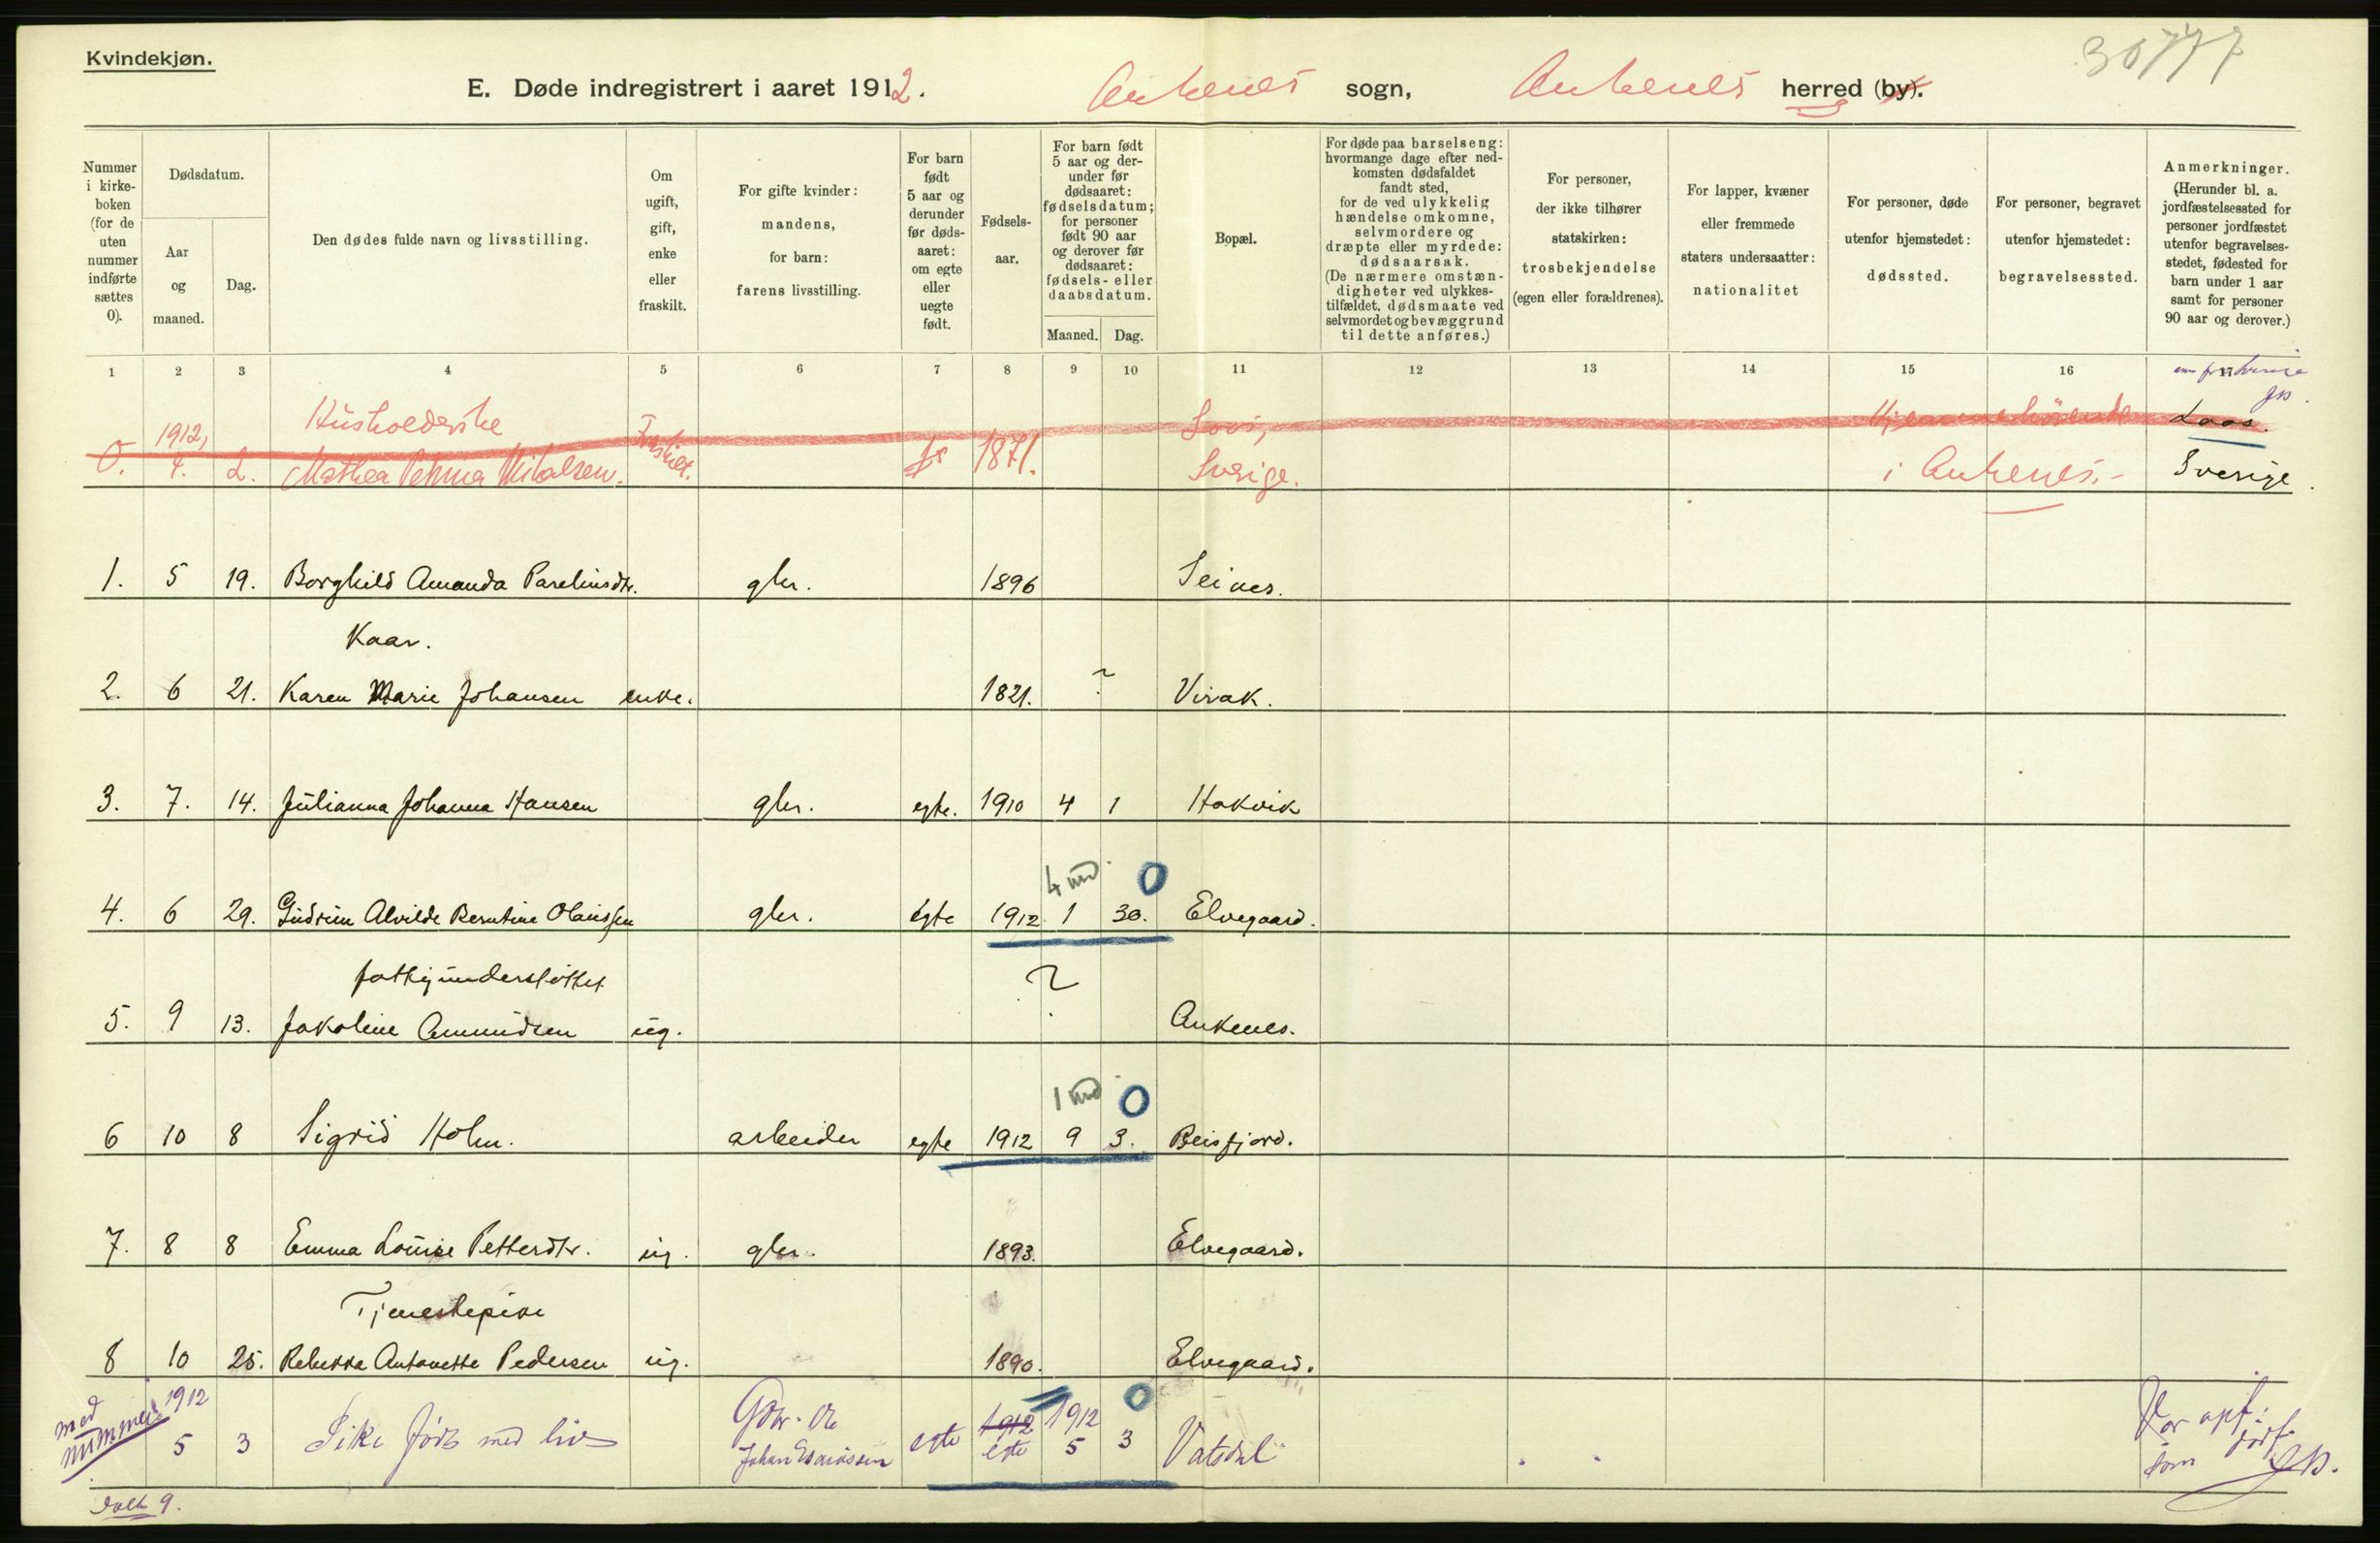 Kvindekjøn.
30777
E. Døde indregistrert i aaret 1912. Ankenes sogn, Ankenes herred (by).
Nummer i kirkeboken (for de uten nummer indførte sættes 0).
Dødsdatum.
Aar og maaned.
Dag.
Den dødes fulde navn og livsstilling.
Om ugift, gift, enke eller fraskilt.
For gifte kvinder: mandens, for barn: farens livsstilling.
For barn født 5 aar og derunder før dødsaaret: om egte eller uegte født.
Fødselsaar.
For barn født 5 aar og derunder før dødsaaret: fødselsdatum; for personer født 90 aar og derover før dødsaaret: fødsels- eller daabsdatum.
Maaned. Dag.
Bopæl.
For døde paa barselseng: hvormange dage efter nedkomsten dødsfaldet fandt sted, for de ved ulykkelig hændelse omkomne, selvmordere og dræpte eller myrdede: dødsaarsak. (De nærmere omstændigheter ved ulykkestilfældet, dødsmaate ved selvmordet og bevæggrund til dette anføres.)
For personer, der ikke tilhører statskirken: trosbekjendelse (egen eller forældrenes).
For lapper, kvæner eller fremmede staters undersaatter: nationalitet
For personer, døde utenfor hjemstedet: dødssted.
For personer, begravet utenfor hjemstedet: begravelsessted.
Anmerkninger. (Herunder bl. a. jordfæstelsessted for personer jordfæstet utenfor begravelsesstedet, fødested for barn under 1 aar samt for personer 90 aar og derover.)
1 2 3 4 5 6 7 8 9 10 11 12 13 14 15 16 17
1912, Husholderske Fraskilt. Loos, Hjemmehörende Loos.
0. 4. 2. Mathea Petrina Mikalsen. 1871. Sverige. i Ankenes.- Sverige.
1. 5 19. Borghild Amanda Parelinsdtr. gbr. 1896 Seines.
Kaar.
2. 6 21. Karen Marie Johansen enke. 1821. ? Virak.
3. 7. 14. Julianna Johanna Hansen gbr. egte. 1910 4 1 Hakvik
4 md. 0
4. 6 29. Gudrun Alvilde Berntine Olaussen gbr. egte 1912 1 30. Elvegaard.
fattigunderstöttet ?
5. 9 13. Jakoline Amundsen ug. Ankenes.
1 md 0
6 10 8 Sigrid Holm. arbeider egte 1912 9 3. Beisfjord.
7. 8 8 Emma Louise Petterdtr. ug. gbr. 1893. Elvegaard.
Tjenestepike
8 10 25. Rebekka Antonette Pedersen ug. 1890. Elvegaard.
med nummer 1912 0
5 3 Pike født med liv Gbr. Ole Johan egte 1912 egte 1912 5 3 Vatsdal Var opf. som
ialt 9.